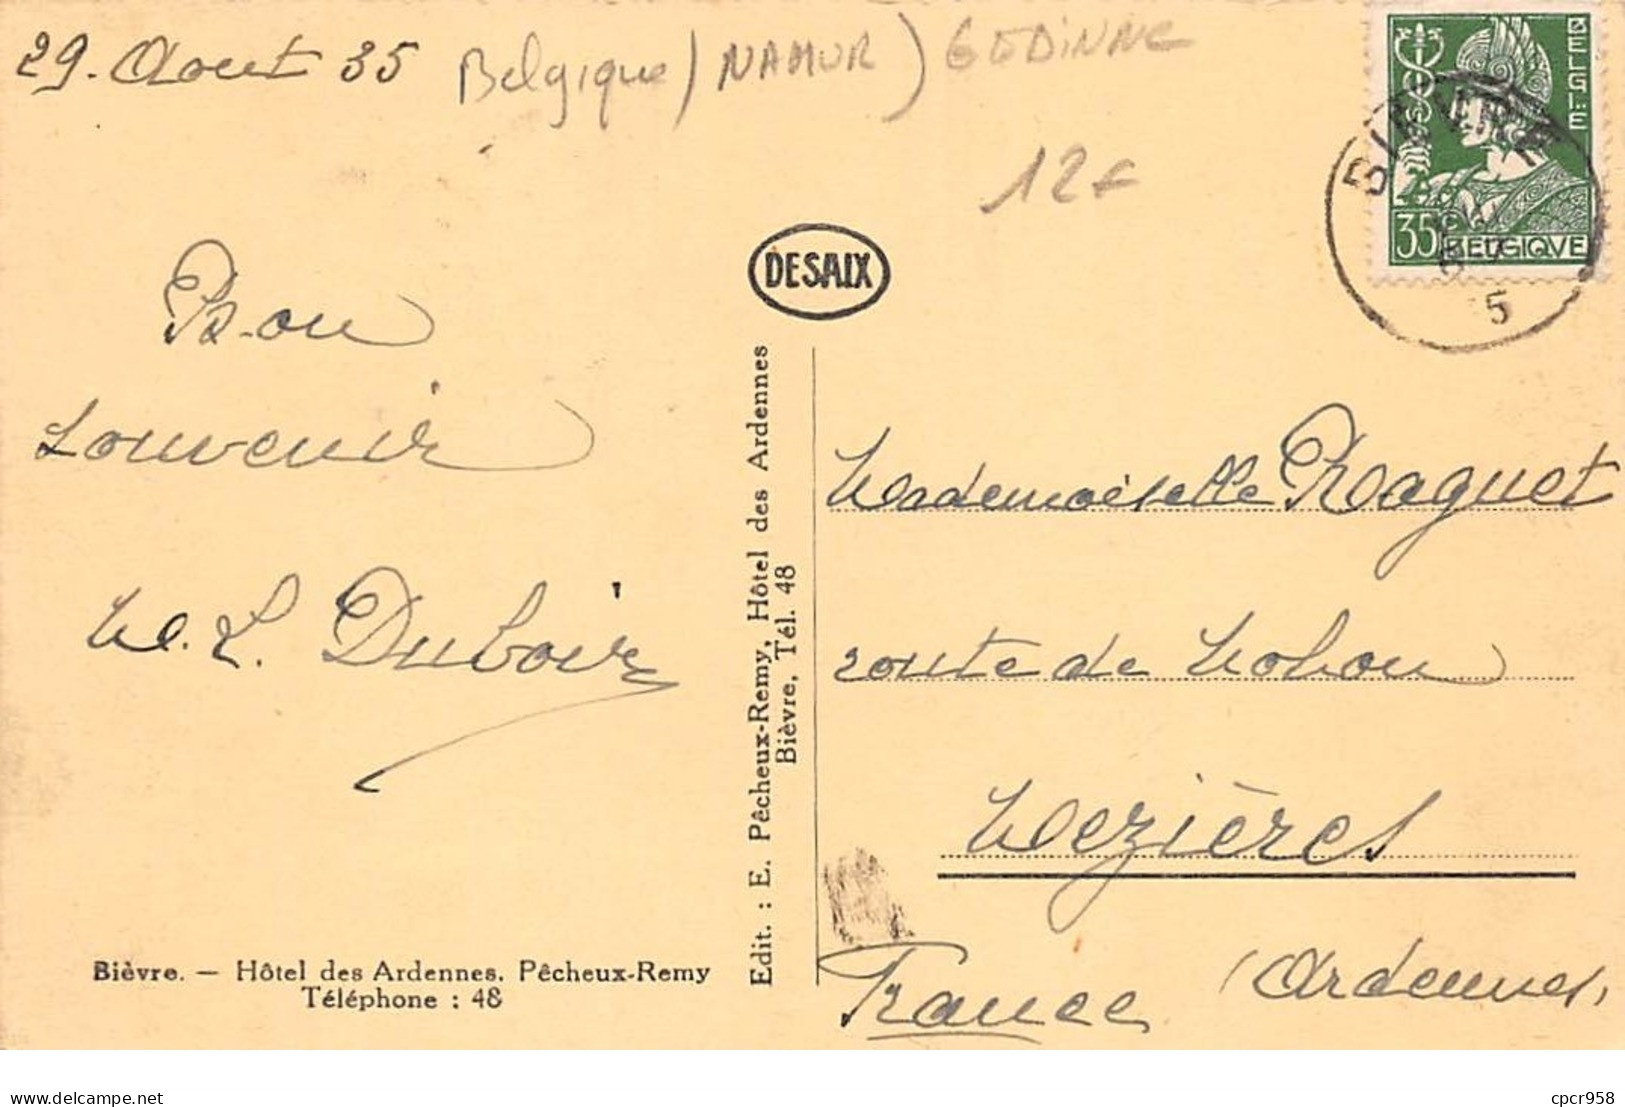 29. Aout 35
Belgique) NAMUR) GODINNE
12€
BELGIE
35c
BELGIQVE
BIEVRE
5
DESAIX
Bon
souvenir
M. L. Dubois
Edit. : E. Pêcheux-Remy, Hôtel des Ardennes
Bièvre, Tél. 48
Mademoiselle Raguet
route de Mohon
Mezières
France (Ardennes)
Bièvre. — Hôtel des Ardennes. Pêcheux-Remy
Téléphone : 48
www.delcampe.net
cpcr958